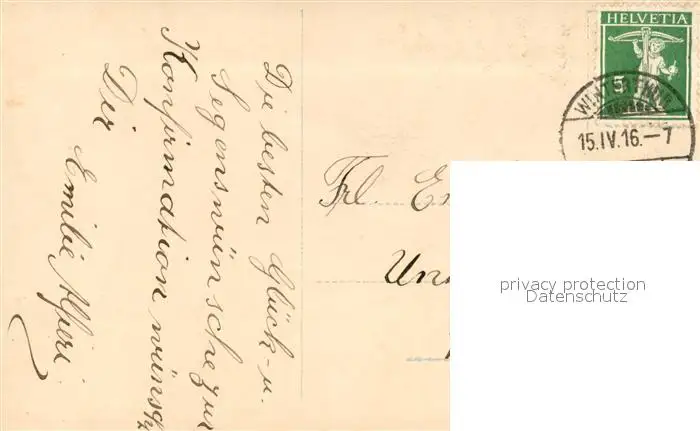 Die besten Glück- u.
Segenswünsche zur
Konfirmation wünscht
Dir
Emilie
HELVETIA
5
15.IV.16.–7
Frl.
privacy protection
Datenschutz